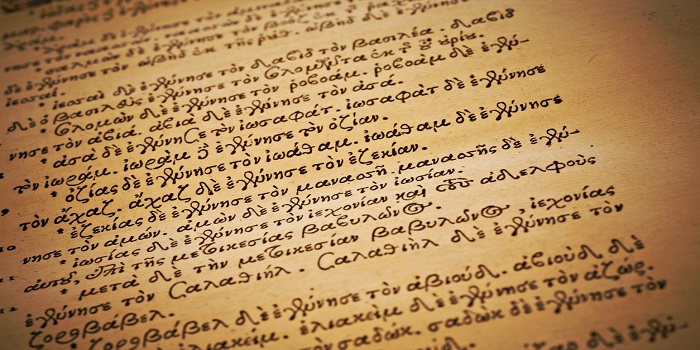 δὲ ἐγέννησε τὸν ὠβὴδ ἐκ τῆς ῥούθ. ὠβὴδ δὲ ἐγέννησε τὸν
ἰεσσαί.
ἰεσσαὶ δὲ ἐγέννησε τὸν δαβὶδ τὸν βασιλέα. δαβὶδ
δὲ ὁ βασιλεὺς ἐγέννησε τὸν σολομῶντα ἐκ τῆς τοῦ οὐρίου.
Σολομὼν δὲ ἐγέννησε τὸν ῥοβοάμ. ῥοβοὰμ δὲ ἐγέν-
νησε τὸν ἀβιά. ἀβιὰ δὲ ἐγέννησε τὸν ἀσά.
ἀσὰ δὲ ἐγέννησε τὸν ἰωσαφάτ. ἰωσαφὰτ δὲ ἐγέννησε
τὸν ἰωράμ. ἰωρὰμ δὲ ἐγέννησε τὸν ὀζίαν.
ὀζίας δὲ ἐγέννησε τὸν ἰωάθαμ. ἰωάθαμ δὲ ἐγέννησε
τὸν ἄχαζ. ἄχαζ δὲ ἐγέννησε τὸν ἐζεκίαν.
ἐζεκίας δὲ ἐγέννησε τὸν μανασσῆ. μανασσῆς δὲ ἐγέν-
νησε τὸν ἀμών. ἀμὼν δὲ ἐγέννησε τὸν ἰωσίαν.
ἰωσίας δὲ ἐγέννησε τὸν ἰεχονίαν καὶ τοὺς ἀδελφοὺς
αὐτοῦ, ἐπὶ τῆς μετοικεσίας βαβυλῶνος.
μετὰ δὲ τὴν μετοικεσίαν βαβυλῶνος, ἰεχονίας
ἐγέννησε τὸν Σαλαθιήλ. Σαλαθιὴλ δὲ ἐγέννησε τὸν
ζοροβάβελ.
ζοροβάβελ δὲ ἐγέννησε τὸν ἀβιούδ. ἀβιοὺδ δὲ
ἐλιακείμ. ἐλιακεὶμ δὲ ἐγέννησε τὸν ἀζώρ.
τὸν σαδώκ. σαδὼκ δὲ ἐγέννησε τὸν